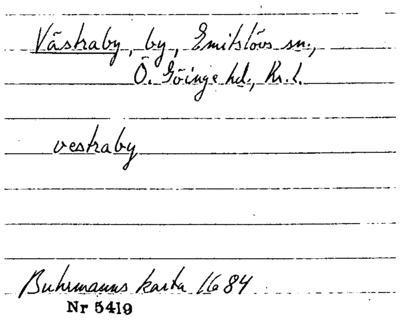 Västraby, by, Emitslövs sn.,
Ö. Göinge hd., Kr. l.
vestraby
Buhrmanns karta 1684
Nr 5419